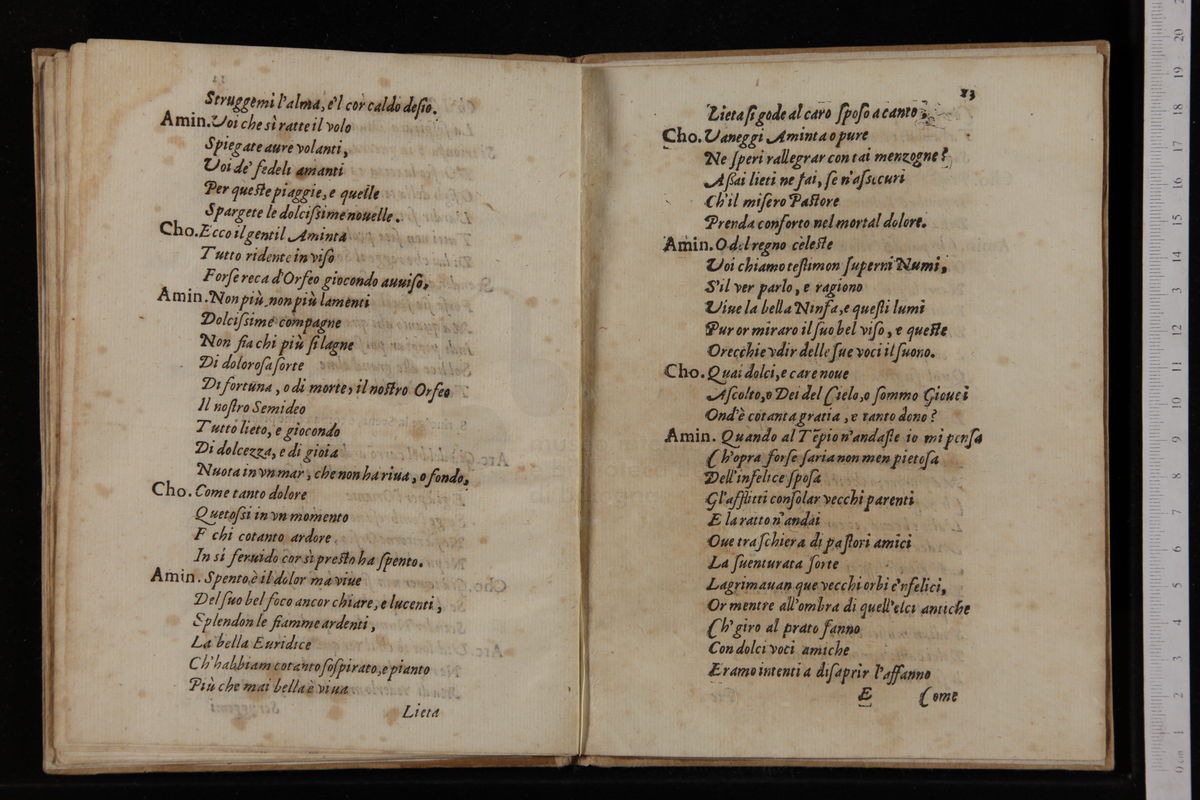 Struggemi l'alma, e'l cor caldo deſio.
Amin. Voi che sì ratte il volo
Spiegate aure volanti,
Voi de' fedeli amanti
Per queſte piaggie, e quelle
Spargete le dolciſsime nouelle.
Cho. Ecco il gentil Aminta
Tutto ridente in viſo
Forſe reca d'Orfeo giocondo auuiſo.
Amin. Non più non più lamenti
Dolciſsime compagne
Non fia chi più ſi lagne
Di doloroſa ſorte
Di fortuna, o di morte, il noſtro Orfeo
Il noſtro Semideo
Tutto lieto, e giocondo
Di dolcezza, e di gioia
Nuota in vn mar, che non ha riua, o fondo,
Cho. Come tanto dolore
Quetoſsi in vn momento
E chi cotanto ardore
In sì feruido cor sì presto ha ſpento.
Amin. Spento è il dolor ma viue
Del ſuo bel foco ancor chiare, e lucenti,
Splendon le fiamme ardenti,
La bella Euridice
Ch'habbiam cotanto ſoſpirato, e pianto
Più che mai bella è viua
Lieta
23
Lieta ſi gode al caro ſpoſo a canto.
Cho. Vaneggi Aminta o pure
Ne ſperi rallegrar con tai menzogne?
Aßai lieti ne fai, ſe n'aſsicuri
Ch'il miſero Paſtore
Prenda conforto nel mortal dolore.
Amin. O del regno cèleſte
Voi chiamo teſtimon ſuperni Numi,
S'il ver parlo, e ragiono
Viue la bella Ninfa, e queſti lumi
Pur or miraro il ſuo bel viſo, e queſte
Orecchie vdir delle ſue voci il ſuono.
Cho. Quai dolci, e care noue
Aſcolto, o Dei del Cielo, o ſommo Gioue
Ond'è cotanta gratia, e tanto dono?
Amin. Quando al Tēpio n'andaſte io mi penſa
Ch'opra forſe ſaria non men pietoſa
Dell'infelice ſpoſa
Gl'afflitti conſolar vecchi parenti
E la ratto n'andai
Oue tra ſchiera di paſtori amici
La ſuenturata ſorte
Lagrimauan que vecchi orbi e'nfelici,
Or mentre all'ombra di quell'elci antiche
Ch'giro al prato fanno
Con dolci voci amiche
Eramo intenti a diſaprir l'affanno
E
Come